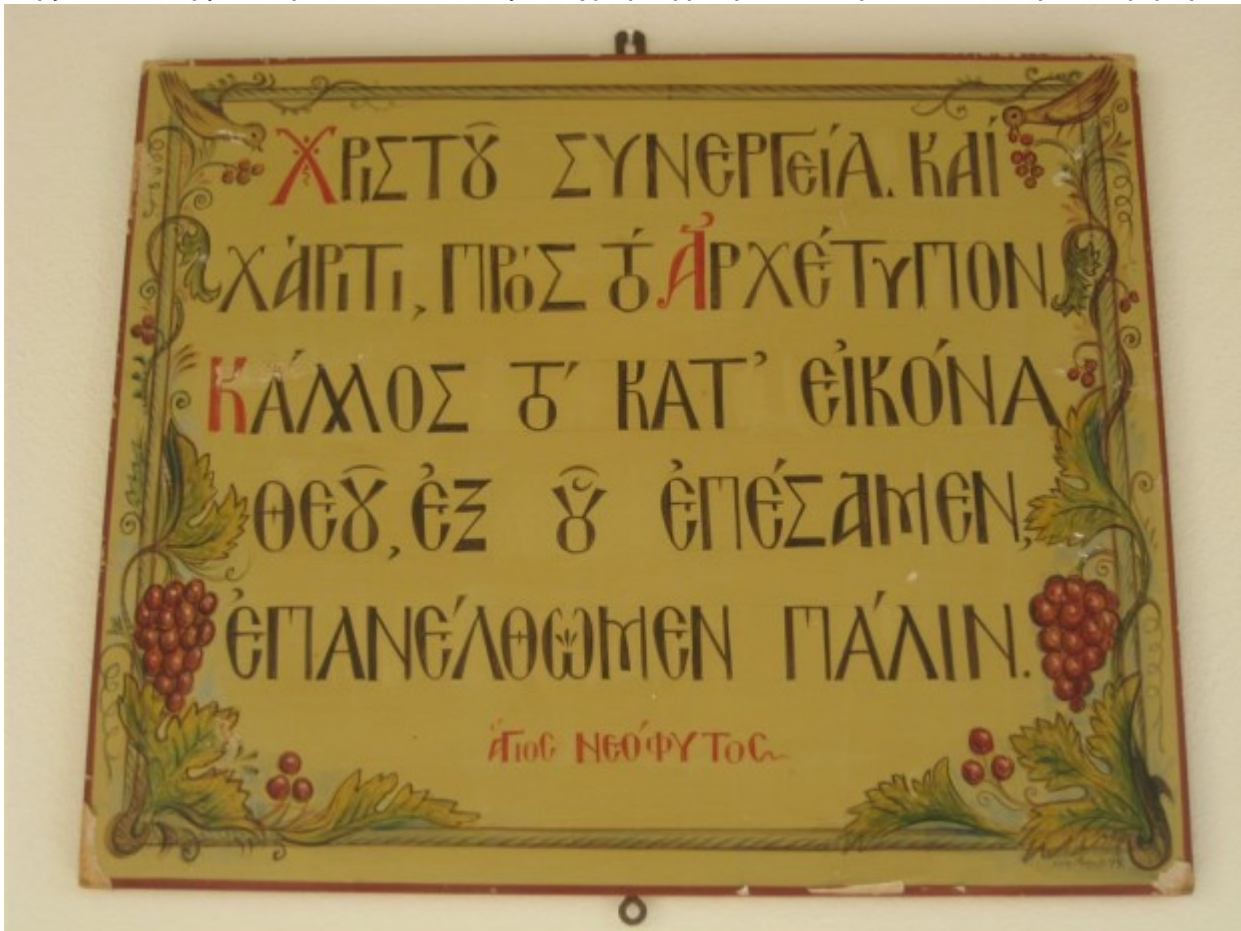 Χριστοῦ ΣΥΝΕΡΓείᾼ. ΚΑΙ
ΧΆΡΙΤΙ, ΠΡῸΣ ΤΌ ἈΡΧΈΤΥΠΟΝ
ΚΆΛΛΟΣ ΤΌ ΚΑΤ' ΕἸΚΌΝΑ
ΘΕΟῦ, ἘΞ Οὗ ἘΠΈΣΑΜΕΝ,
ἘΠΑΝΈΛΘΩΜΕΝ ΠΆΛΙΝ.
ἍΓΙΟΣ ΝΕΌΦΥΤΟΣ